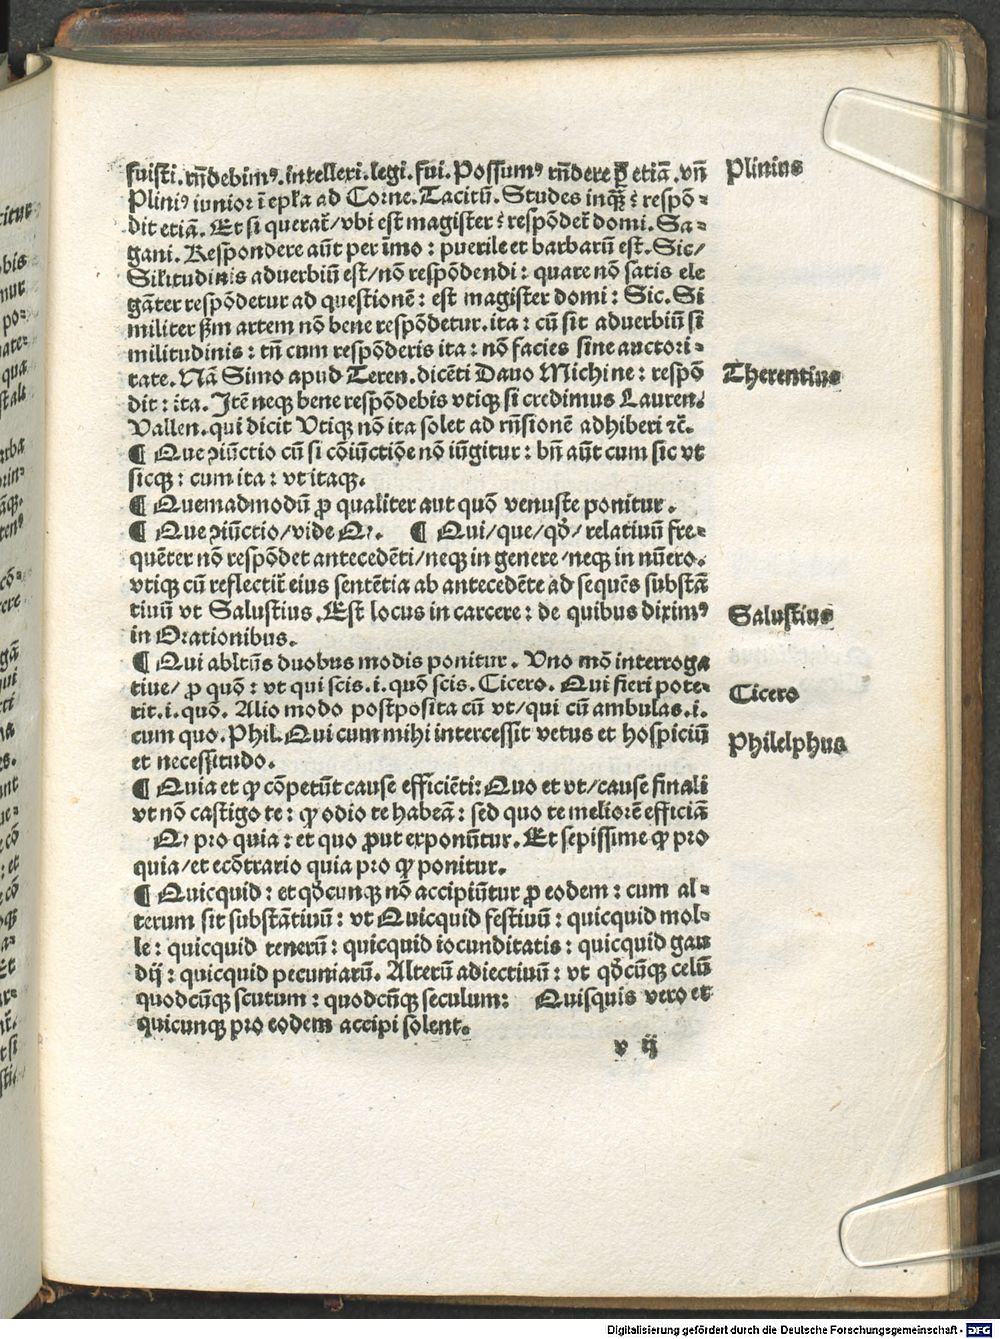 fuisti. rn̄debimꝰ. intellexi. legi. fui. Possumꝰ rn̄dere ꝑ etiā. vn̄
Pliniꝰ iunior ī epl̓a ad Corne. Tacitū. Studes inqͥt: respō-
dit etiā. Et si querat̄/vbi est magister: respōdet̄ domi. Sa-
gani. Respondere aūt per īmo: puerile et barbarū est. Sic/
Sil̓itudinis aduerbiū est/nō respōdendi: quare nō satis ele
gāter respōdetur ad questionē: est magister domi: Sic. Si
militer ẜm artem nō bene respōdetur. ita: cū sit aduerbiū si
militudinis: tn̄ cum respōderis ita: nō facies sine auctori-
tate. Nā Simo apud Teren. dicēti Dauo Michine: respō
dit: ita. Itē neqꝫ bene respōdebis vtiqꝫ si credimus Lauren.
Vallen. qui dicit Vtiqꝫ nō ita solet ad rn̄sionē adhiberi ⁊c̄.
¶ Que ꝯiūctio cū si cōiūctiōe nō iūgitur: bn̄ aūt cum sic vt
sicqꝫ: cum ita: vt itaqꝫ.
¶ Quemadmodū ꝓ qualiter aut quō venuste ponitur.
¶ Que ꝯiūctio/vide Qꝫ. ¶ Qui/que/qḋ/relatiuū fre-
quēter nō respōdet antecedēti/neqꝫ in genere/neqꝫ in nūero.
vtiqꝫ cū reflectit̄ eius sentētia ab antecedēte ad sequēs substā
tiuū vt Salustius. Est locus in carcere: de quibus diximꝰ
in Orationibus.
¶ Qui abltūs duobus modis ponitur. Vno mō interroga
tiue/ꝓ quō: vt qui scis. i. quō scis. Cicero. Qui fieri pote-
rit. i. quō. Alio modo postposita cū vt/qui cū ambulas. i.
cum quo. Phil. Qui cum mihi intercessit vetus et hospiciū
et necessitudo.
¶ Quia et ꝙ cōpetūt cause efficiēti: Quo et vt/cause finali
vt nō castigo te: ꝙ odio te habeā: sed quo te meliorē efficiā
Qꝫ pro quia: et quo ꝓut exponūtur. Et sepissime ꝙ pro
quia/et ecōtrario quia pro ꝙ ponitur.
¶ Quicquid: et qḋcunqꝫ nō accipiūtur ꝓ eodem: cum al-
terum sit substātiuū: vt Quicquid festiuū: quicquid mol-
le: quicquid tenerū: quicquid iocunditatis: quicquid gau
dij: quicquid pecuniarū. Alterū adiectiuū: vt qḋcūqꝫ celū
quodcūqꝫ scutum: quodcūqꝫ seculum: Quisquis vero et
quicunqꝫ pro eodem accipi solent.
v ij
Plinius
Therentius
Salustius
Cicero
Philelphus
Digitalisierung gefördert durch die Deutsche Forschungsgemeinschaft - DFG